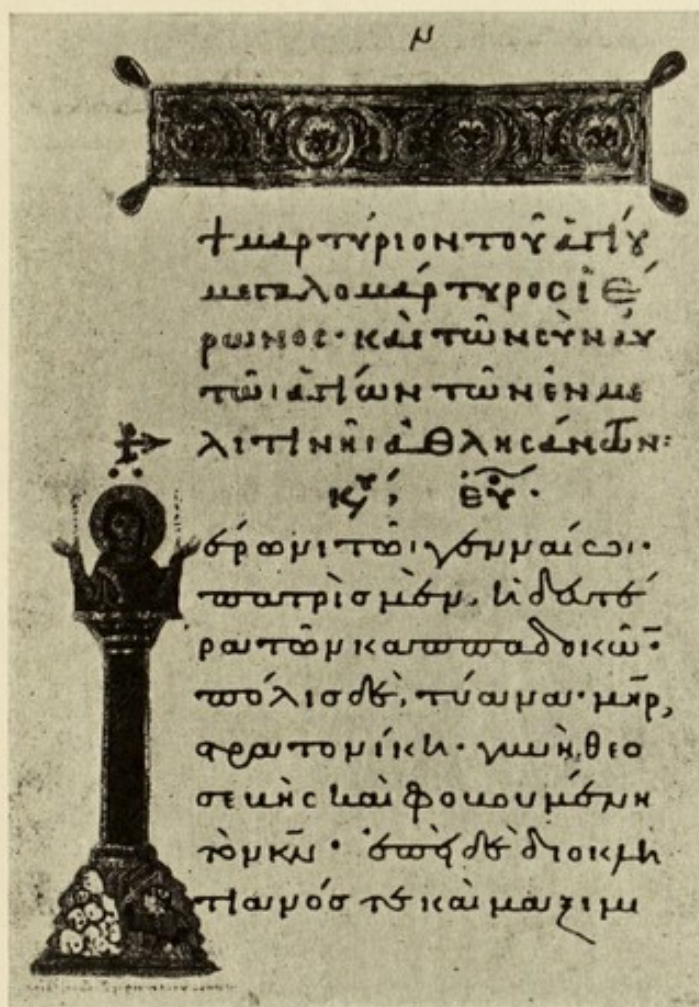 μ
+ μαρτύριον τοῦ ἁγίȣ
μεγαλομάρτυρος ἱέ
ρωνος· καὶ τῶν σὺν αὐ
τῶι ἁγίων τῶν ἐν με
λιτινῆι ἀθλησάντων:
κυ, ευ.
έρωνι τῶι γενναίωι·
πατρὶς μὲν, ἡ δευτέ
ρα τῶν καππαδοκῶ̅·
πόλις δὲ, τύανα· μη̅ρ,
στρατονίκη· γυνὴ, θεο
σεβὴς καὶ φοβουμένη
τὸν κ̅ν· ἐπεὶ δὲ διοκλη
τιανός τε καὶ μαξιμι